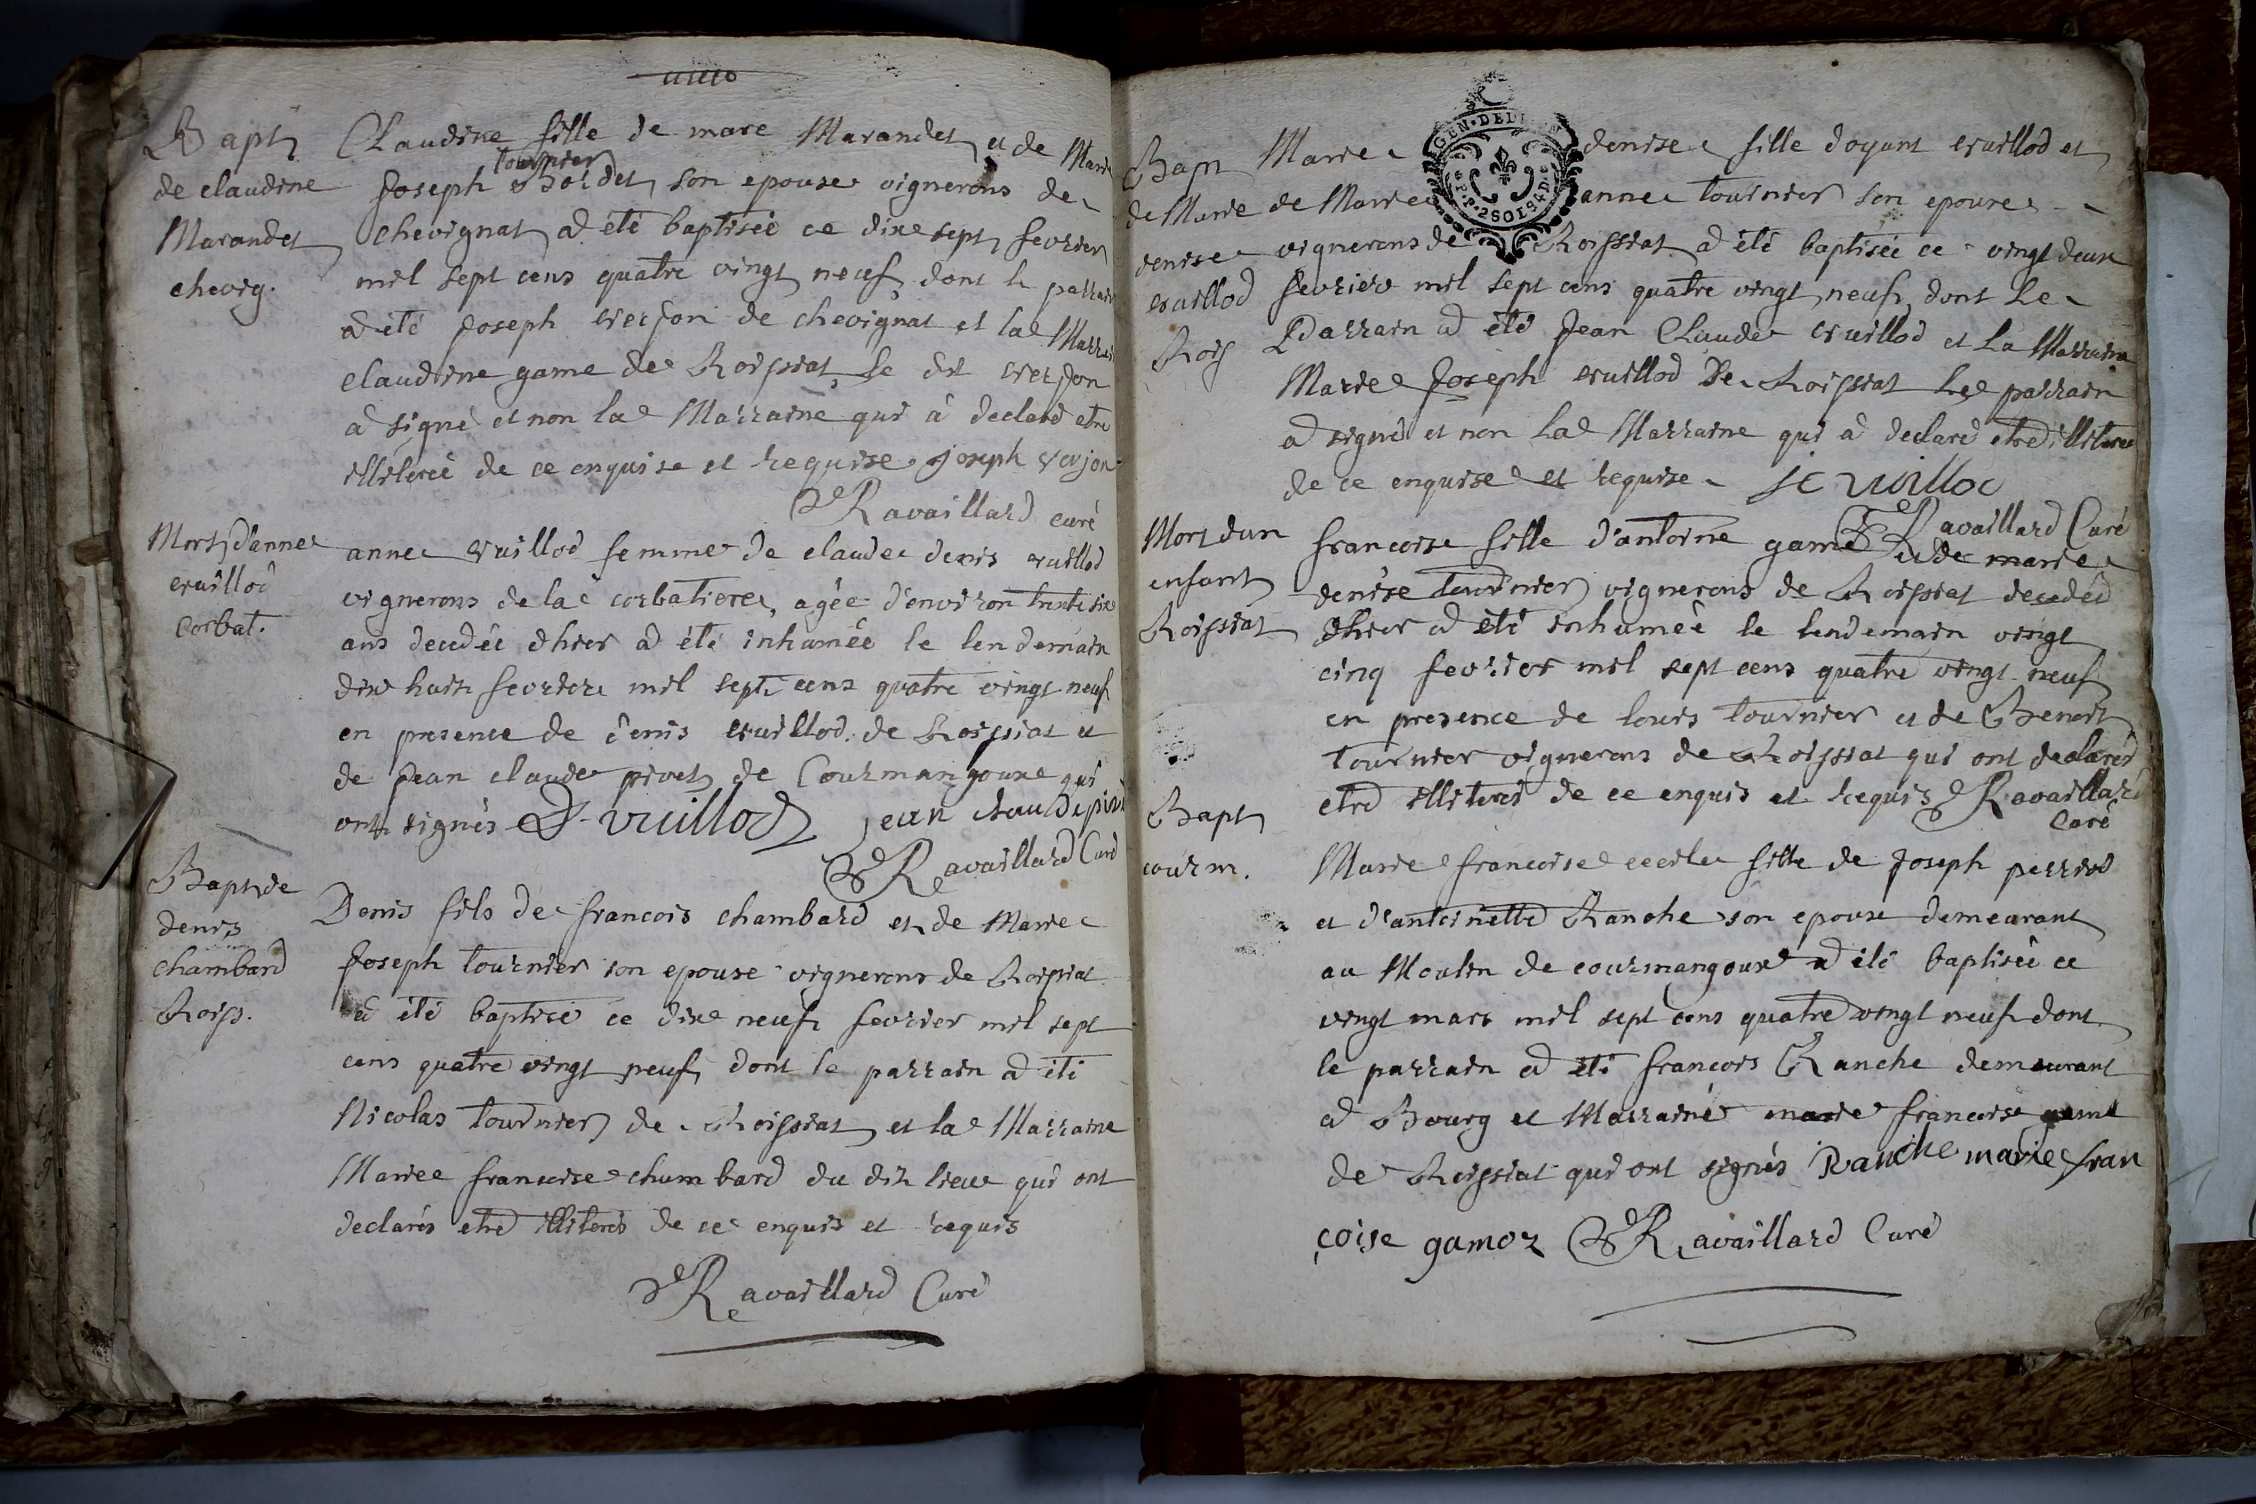 Bapt
de claudine
Marandet
chevig.
Claudine fille de marc Marandet et de Marie
tournier
Joseph Boidet son epouse vignerons de
chevignat a été baptisée ce dixe sept fevrier
mil sept cens quatre vingt neuf dont le parrain
a été Joseph verjon de chevignat et la Marraine
claudine game de Roissiat le dit verjon
a signé et non la Marraine qui à declaré etre
illiterée de ce enquise et requise Joseph verjon
Ravaillard curé
Mort d'anne
vuillod
corbat.
anne vuillod femme de claude denis vuillod
vignerons de la corbatiere, agée d'environ trente six
ans decedée d'hier a été inhumée le lendemain
dix huit fevrier mil sept cens quatre vingt neuf
en presence de denis vuillod de Roissiat et
de Jean claude pivet de Courmangoux qui
ont signés D. vuillod jean claude pivet
Ravaillard Curé
Bapt de
denis
chambard
Roiss.
Denis fils de francois chambard et de Marie
Joseph tournier son epouse vignerons de Roissiat
a été baptisé ce dixe neuf fevrier mil sept
cens quatre vingt neuf dont le parrain a été
Nicolas tournier de Roissiat et la Marraine
Marie francoise chambard du dit lieue qui ont
declarés etre illiterés de ce enquis et requis
Ravaillard Curé
Bapt
de Marie
denise
vuillod
Rois
GEN. DEDI
2 SOLS 4 D.
Marie denise fille d'oyant vuillod et
de Marie anne tournier son epouse
vignerons de Roissiat a été baptisée ce vingt deux
fevrier mil sept cens quatre vingt neuf dont Le
Parrain a été Jean Claude vuillod et La Marraine
Marie Joseph vuillod De Roissiat Le parrain
a signé et non La Marraine qui a declaré etre illiterée
de ce enquise et requise JC vuillod
Ravaillard Curé
Mort d'un
enfant
Roissiat
francoise fille d'antoine game et de marie
denise tournier vignerons de Roissiat decedée
d'hier a été inhumée le lendemain vingt
cinq fevrier mil sept cens quatre vingt neuf
en presence de louis tournier et de Benoit
tournier vignerons de Roissiat qui ont declarés
etre illiterés de ce enquis et requis Ravaillard
Curé
Bapt
courm.
Marie francoise cecile fille de Joseph perrod
et d'antoinette Ranche son epouse demeurant
au Moulin de courmangoux a été baptisée ce
vingt mars mil sept cens quatre vingt neuf dont
le parrain a été francois Ranche demeurant
a Bourg et Marraine marie francoise game
de Roissiat qui ont signés Ranche marie fran
çoise gamoz Ravaillard Curé